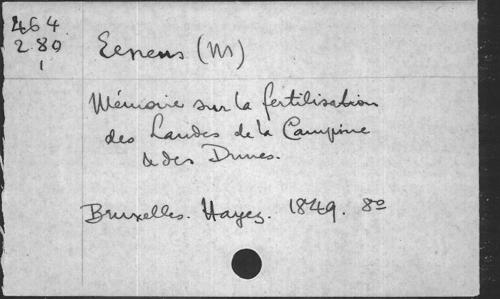 464
2.80
1
Eenens (M)
Mémoire sur la fertilisation
des Landes de la Campine
& des Dunes.
Bruxelles. Hayez. 1849. 8o